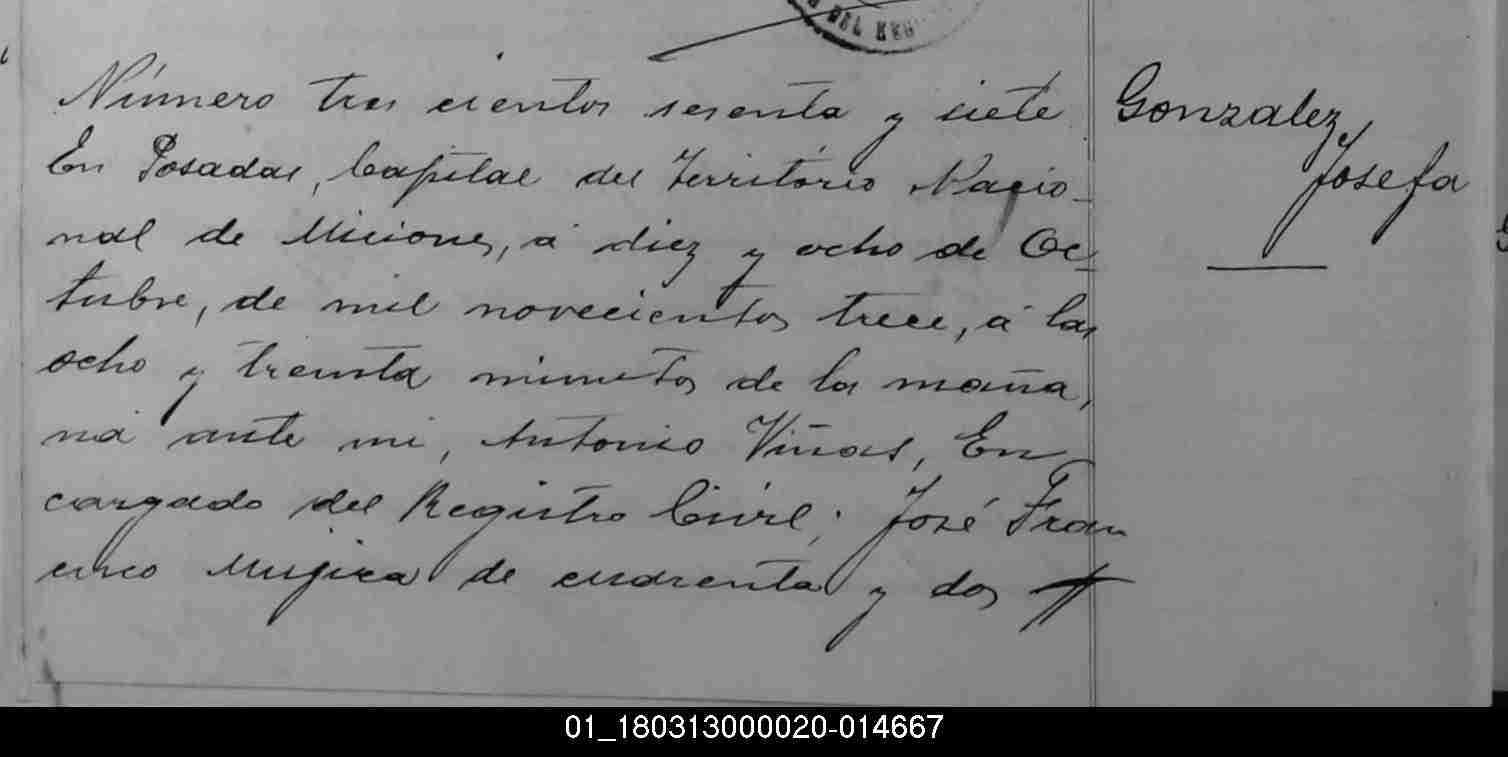 DEL REG
Número tres cientos sesenta y siete
En Posadas, Capital del Território Nacio-
nal de Miciones, á diez y ocho de Oc-
tubre, de mil novecientos trece, á las
ocho y treinta minutos de la maña,
na ante mi, Antonio Viñas, En
cargado del Registro Civil; José Fran
cisco Mujica de cuarenta y dos
Gonzalez,
Josefa
01_180313000020-014667